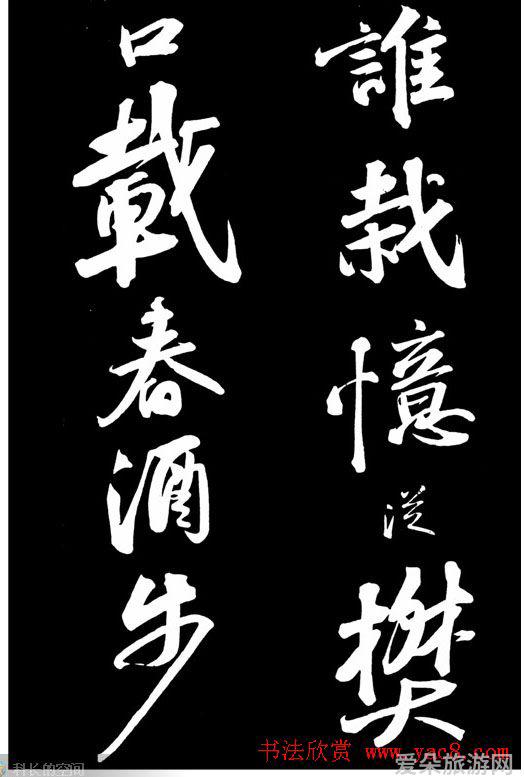 誰栽憶從樊
口載春酒步
书法欣赏 www.yac8.com
科长的空间
爱朵旅游网